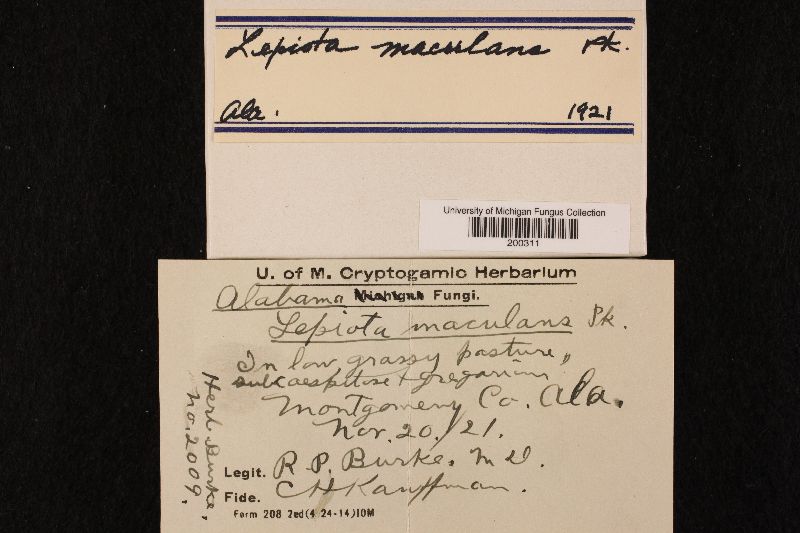 Lepiota maculans Pk.
Ala. 1921
University of Michigan Fungus Collection
200311
U. of M. Cryptogamic Herbarium
Alabama Michigan Fungi.
Lepiota maculans Pk.
In low grassy pasture,
subcaespitose + gregarious
Montgomery Co. Ala.
Nov. 20/21.
Legit. R P. Burke, M D.
Fide. CHKauffman.
Form 208 2ed(4 24-14)10M
Herb. Burke,
No. 2009.